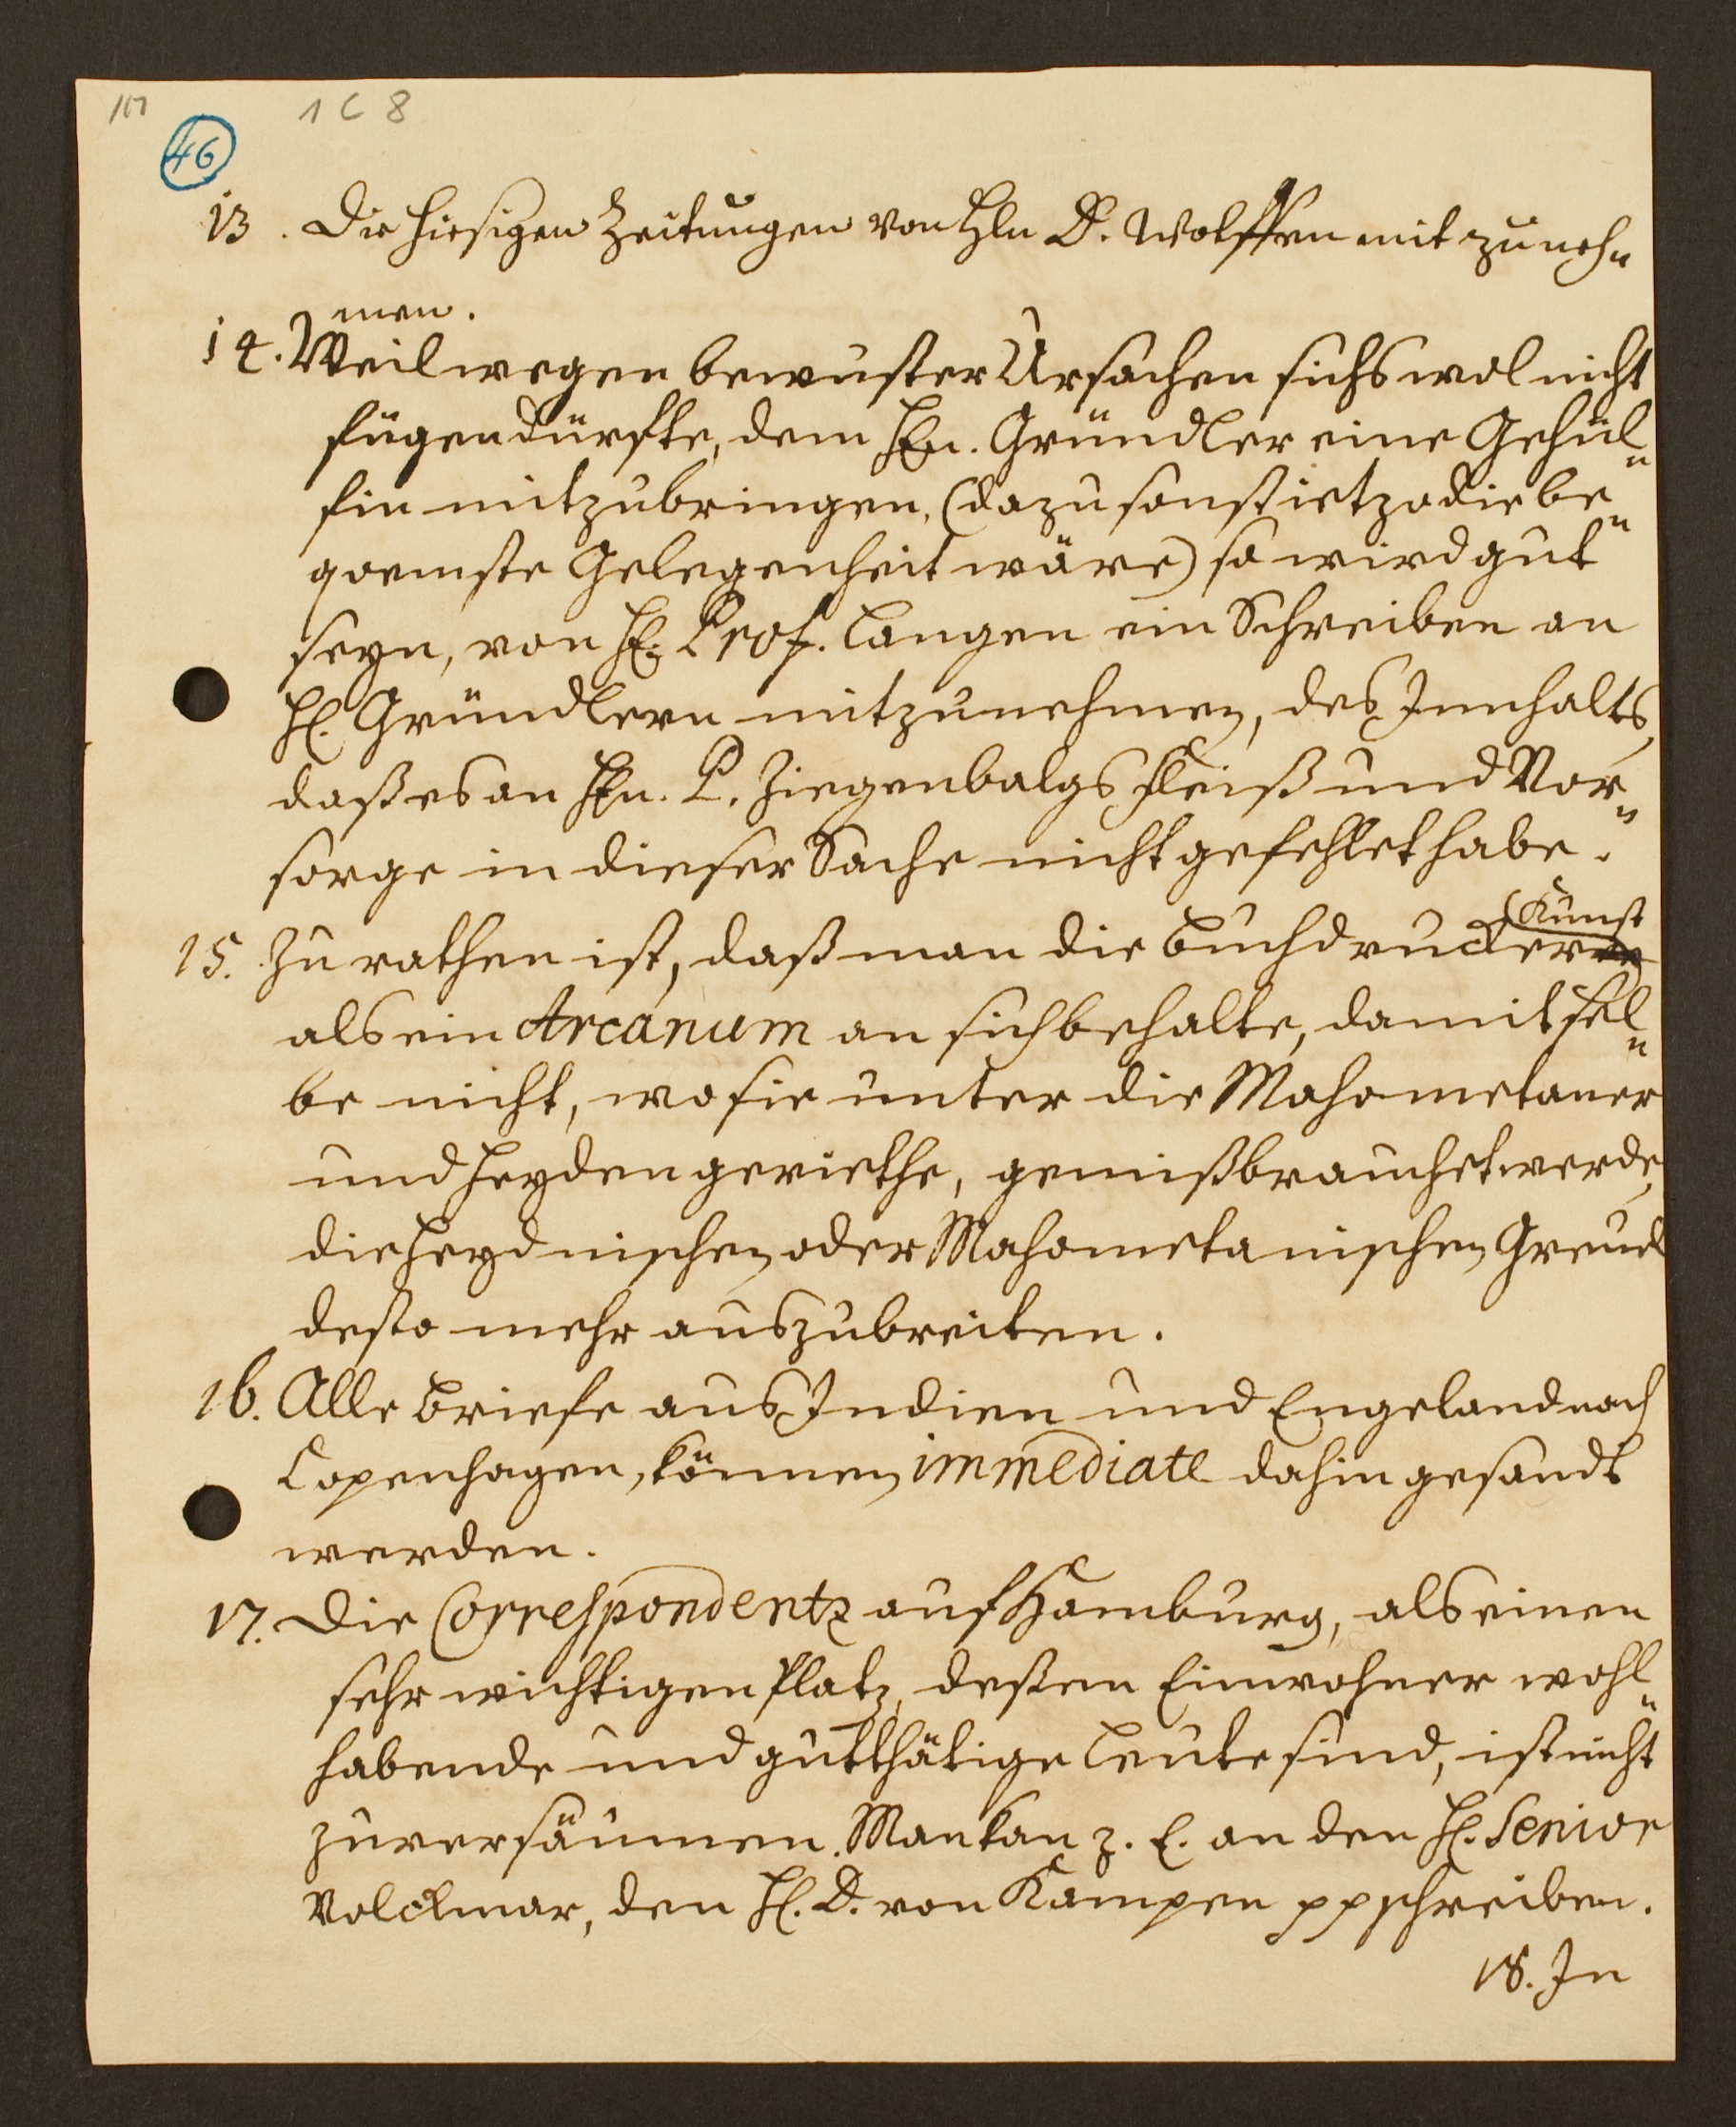 1 C 8
46
13. Die hiesigen Zeitungen von Hln D. Wolffen mit zuneh⸗
men.
14. Weil wegen bewuster Ursachen sichs wol nicht
fügen dürfte, dem Hln. Gründler eine Gehül⸗
fin mitzubringen, (dazu sonst ietzo die be⸗
qvemste Gelegenheit wäre) so wird gut
seyn, von H. Prof. Langen ein Schreiben an
H. Gründlern mitzunehmen, des Innhalts,
daß es an Hln. P. Ziegenbalgs Fleiß und Vor⸗
sorge in dieser Sache nicht gefehlet habe.
15. Zu rathen ist, daß man die Buchdrucker Kunst
als ein Arcanum an sich behalte, damit sel⸗
be nicht, wo sie unter die Mahometaner
und Heyden geriethe, gemißbrauchet werde,
die Heydnischen oder Mahometanischen Greuel
desto mehr auszubreiten.
16. Alle Briefe aus Indien und Engeland nach
Copenhagen, können immediate dahin gesandt
werden.
17. Die Correspondentz auf Hamburg, als einen
sehr wichtigen Platz, deßen Einwohner wohl⸗
habende und gutthätige Leute sind, ist nicht
zuversäumen. Man kan z. E. an den H. Senior
Volckmar, den H. D. von Kampen pp schreiben.
18. In